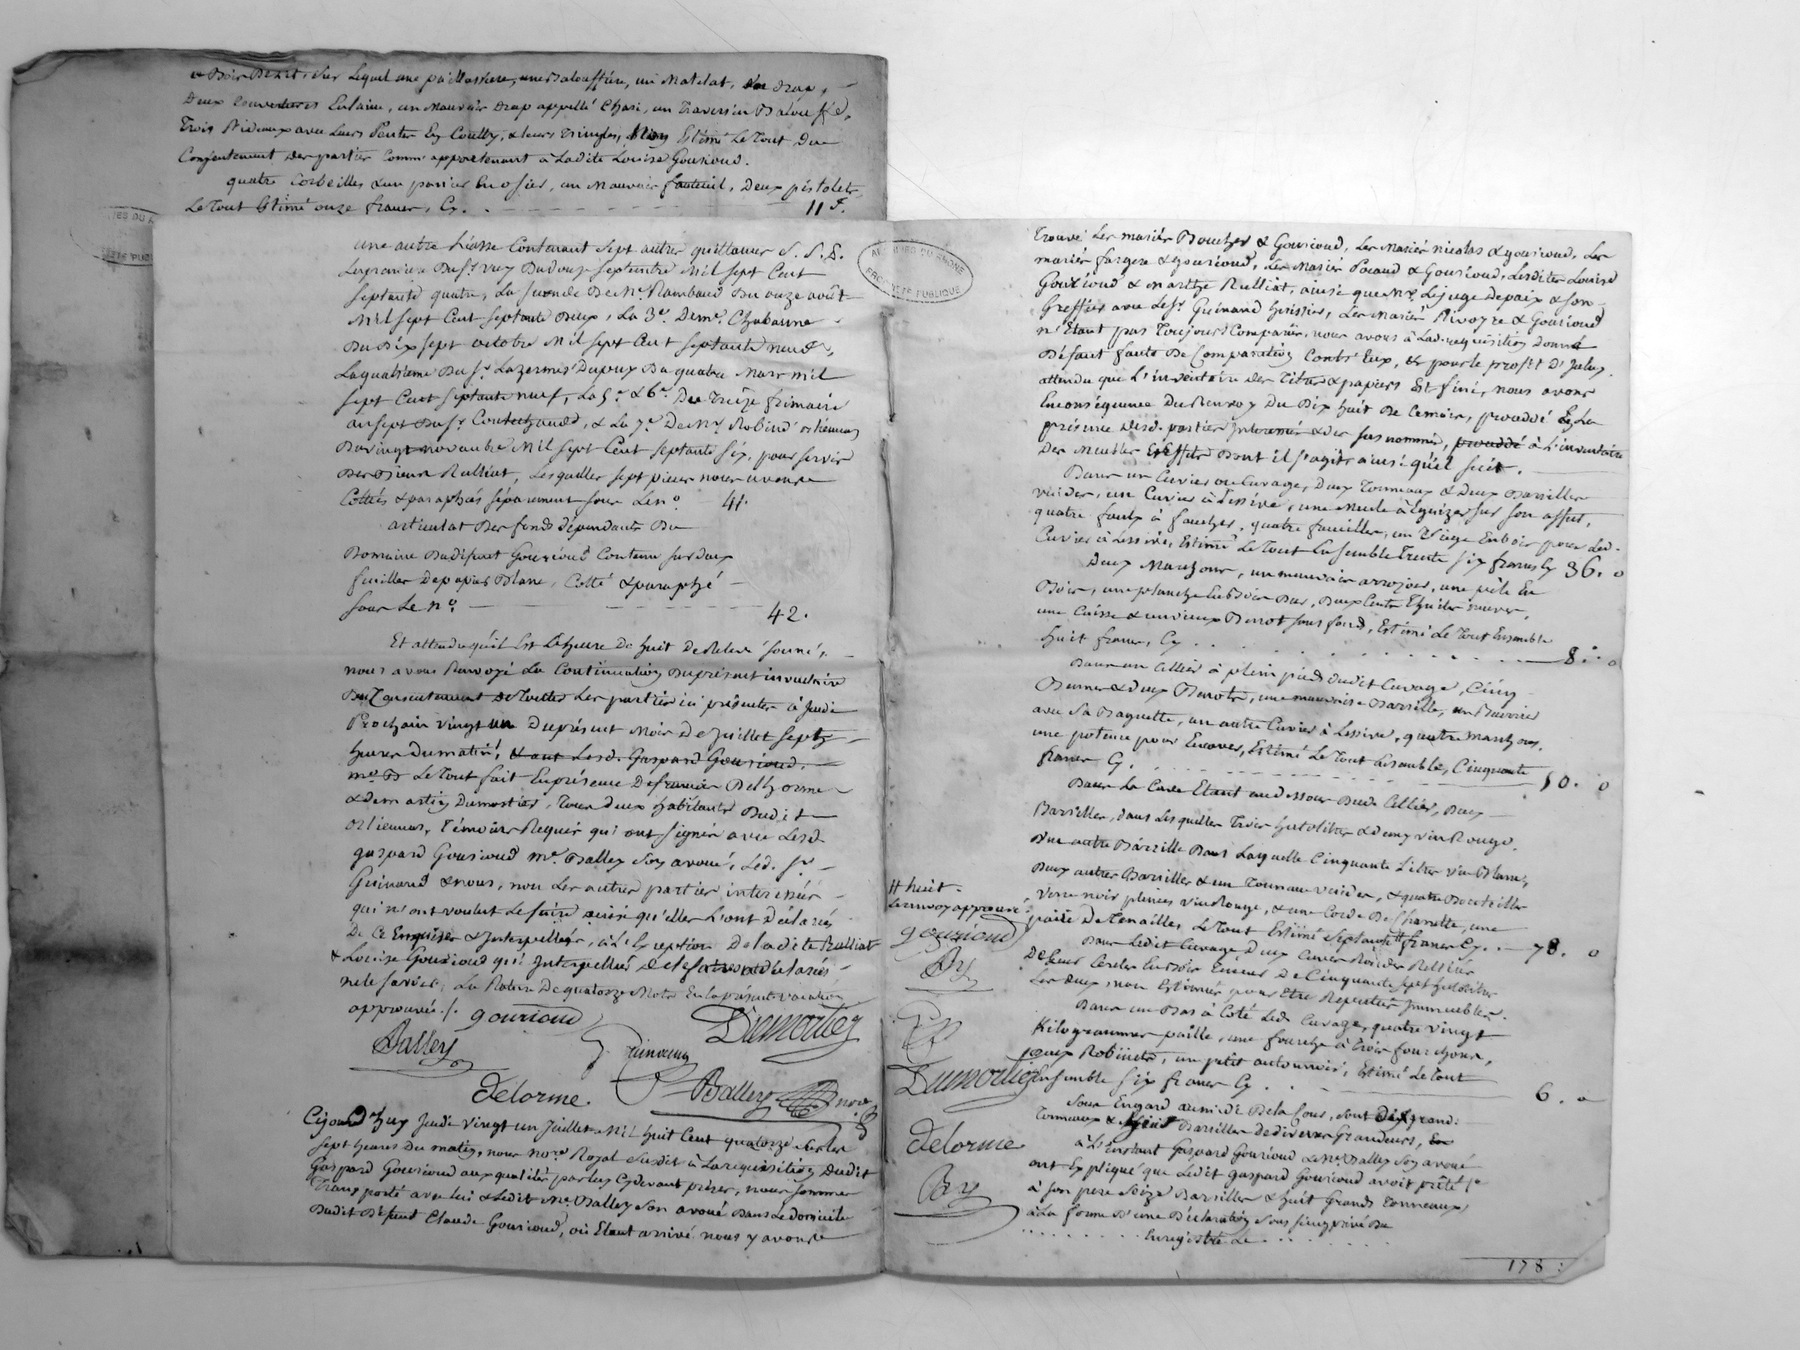 de Bois Blanc, sur lequel une paillassiere, une Balouffiere, un Matelat, un drap,
Deux Couvertures Enlaine, un Mauvais drap appellé Chasi, un Traversin Balouffé,
Trois Rideaux avec Leurs Pentes En Coutty, & leurs Tringles, Estimé Le Tout Du
Consentement des parties Comme appartenant à Ladite Louise Gourioud.
quatre Corbeilles & un panier En osier, un Mauvais fauteuil, Deux pistolets,
Le Tout Estimé onze francs, Cy. 11 f.
une autre Liasse Contenant Sept autres quittances S. S. E.
Lapremiere Du Sr. Rey Du Douze Septembre Mil Sept Cent
Septante quatre, La Seconde De Me. Rambaud Du onze août
Mil Sept Cent Septante Deux, La 3e. De me. Chabanne
Du Dix Sept octobre Mil Sept Cent Septante neuf,
Laquatrieme Du Sr. Lazermes Dupuy Du quatre Mars mil
Sept Cent Septante neuf, La 5e. & 6e. Du Treize frimaire
an Sept Du Sr. , & La 7e. De Me. Robin à orlienas
Du vingt novembre Mil Sept Cent Septante Six, pour Servir
Des Sieur Rulliat, Lesquelles Sept pieces nous avons
Cottés & paraphés Séparement Sous Le no. 41.
articulat Des fonds dépendants Du
Domaine Dudéfunt Gourioud Contenu Sur Deux
feuilles De papier Blanc, Cotté & paraphé
Sous Le no. 42.
Et attendu qu'il Est L'Heure De huit De Relevé Sonné,
nous avons Renvoyé La Continuation Duprésent inventaire
Du Consentement De Toutes Les parties ici présentes à Jeudi
Prochain vingt un Duprésent Mois De Juillet Sept
heures Dumatin, & ont Lesd. Gaspard Gourioud.
me. B Le Tout fait En présence De francois Delhorme
& De Martin Dumortier, Tous Deux habitants Dudit
orlienas, Témoins Requis qui ont Signés avec Lesd.
gaspard Gourioud me. Balley Son avoué, Led. Sr.
Guinand & nous, non Les autres parties intéressées
qui n'ont voulut Le faire ainsi qu'elles L'ont Déclarés
De Ce Enquises & Interpellées, à L'Exeption De ladite Rulliat
& Louise Gourioud qui Interpellés De le faire ont déclarés
ne le Savoir, La Rature De quatorze Mots En la présente vacation
approuvée ./. gourioud
Dumortier
Balley
Guinand
Delorme.
Balley nore
Cejourd'huy Jeudi vingt un Juillet Mil huit Cent quatorze Sur Les
Sept heures Du matin, nous nore. Royal Susdit à La réquisition Dudit
Gaspard Gourioud aux qualités par luy Cydevant prises, nous Sommes
Transporté avec lui & Ledit Me. Balley Son avoué Dans Le Domicile
Dudit Défunt Claude Gourioud, où Etant arrivé nous y avons
ARCHIVES DU RHONE
PROPRIÉTÉ PUBLIQUE
Trouvé Les mariés Boucher & Gourioud, Les Mariés nicolas & gourioud, Les
mariés fargere & gourioud, Les Mariés Pocaud & Gourioud, Lesdites Louise
Gourioud & Marthe Rulliat, ainsi que Mr. Le juge De paix & Son
Greffier avec Le Sr. Guinand huissier, Les Mariés Rivoyre & Gourioud
n'Etant pas Toujours Comparus, nous avons à Lad. requisition Donné
Défaut faute De Comparution Contr'Eux, & pour Le profit D'Icelui,
attendu que L'inventaire Des Titres & papiers Est fini, nous avons
En conséquence Du Renvoy Du Dix huit De Ce mois, procédé En La
présence Desd. parties Interressées & Des Sus nommés, procédé à L'inventaire
Des Meubles & Effets Dont il S'agit, ainsi qu'il Suit.
Dans un Cuvier ou Cuvage, Deux Tonneaux & Deux Barrilles
vuides, un Cuvier à Lessive, une Meule à Eguizer Sur Son affut,
quatre faulx à faucher, quatre faucilles, un Siege En bois pour Led.
Cuvier à Lessive, Estimé Le Tout Ensemble Trente Six francs Cy 36. 0
Deux Manchons, un mauvais arrosoir, une pele En
Bois, une planche En Bois Dur, Deux Cents Thuiles neuves,
une Caisse & un vieux Benot Sans fond, Estimé Le Tout Ensemble
huit francs, Cy 8. 0
Dans un Cellier à plein pied dudit Cuvage, Cinq
Bennes & Deux Benots, une mauvaise Barrille, un Buvoir
avec Sa Baguette, un autre Cuvier à Lessive, quatre Manchons,
une potence pour Encaver, Estimé Le Tout Ensemble, Cinquante
francs Cy. 50. 0
Dans La Cave Etant au dessous Dud. Cellier, Deux
Barrilles, dans Lesquelles Trois hectolitres & Demy vin Rouge.
Une autre Barrille Dans Laquelle Cinquante Litres vin Blanc,
Deux autres Barrilles & un Tonneau vuides, & quatre Bouteilles
verre noir pleines vin Rouge, & une Corde De Charrette, une
paire De Tenailles, Le Tout Estimé Septante # francs Cy. 78. 0
# huit.
Le renvoy approuvé
gourioud
By
Dumortier
Delorme
Bay
Dans Ledit Cuvage, Deux Cuves Rondes Relliées
De Leurs Cercles En bois Environ De Cinquante Sept hectolitres
Les Deux, non Estimées pour Etre Reputées Immeubles.
Dans un Bas à Coté Led. Cuvage, quatre vingt
Kilogrammes paille, une fourche à Trois fourchons,
Deux Robinets, un petit antonnoir, Estimé Le Tout
Ensemble Six francs Cy 6. 0
Sous Engard au midi De La Cour, Sont Dix grands
Tonneaux & Barrilles De diverses Grandeurs,
à L'instant Gaspard Gourioud & Me. Balley Son avoué
ont Expliqué que Ledit gaspard Gourioud avoit prêté
à Son pere Seize Barrilles & huit Grands Tonneaux,
à La forme D'une Déclaration Sous Seing privé Du
Enregistrée Le
178: